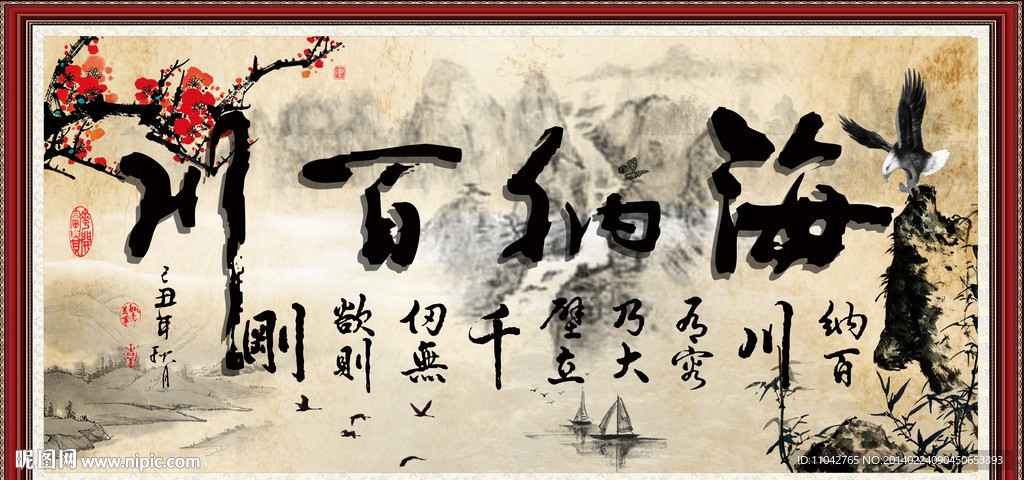 海纳百川
纳百
川
有容
乃大
壁立
千
仞無
欲則
剛
己丑年秋月
昵图网 www.nipic.com
ID:11042765 NO:20140224090450653393